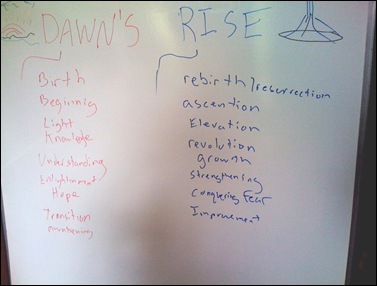 DAWN'S RISE
Birth
Beginning
Light
Knowledge
Understanding
Enlightenment
Hope
Transition
Awakening
rebirth/resurrection
ascention
Elevation
revolution
growth
strengthening
Conquering Fear
Improvement